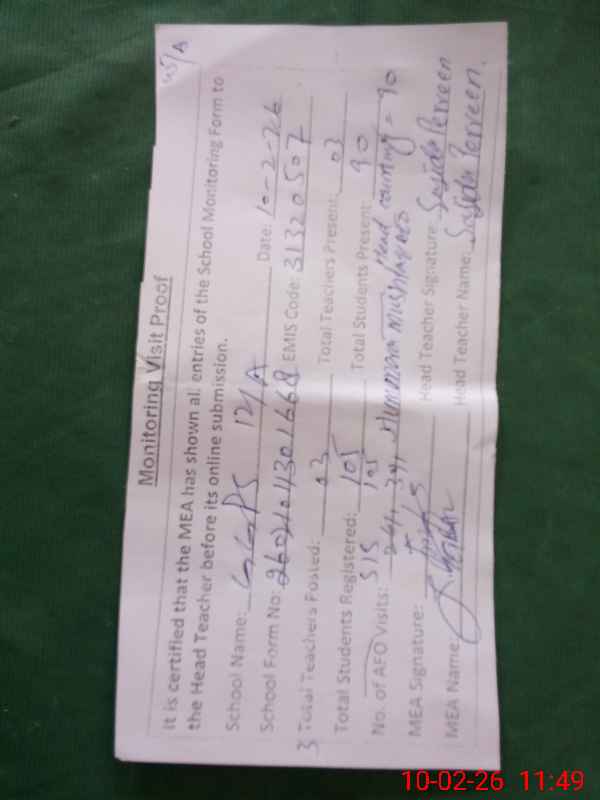 45/A
Monitoring Visit Proof
It is certified that the MEA has shown all entries of the School Monitoring Form to
the Head Teacher before its online submission.
School Name: GGPS 121/A Date: 10-2-26
School Form No: EMIS Code: 31320507
3 Total Teachers Posted: 03 Total Teachers Present: 03
Total Students Registered: 105 Total Students Present: 90
SIS 105 Head counting = 90
No. of AEO Visits:
MEA Signature: Head Teacher Signature: Sajida Perveen
MEA Name: Head Teacher Name: Sajida Perveen.
10-02-26 11:49